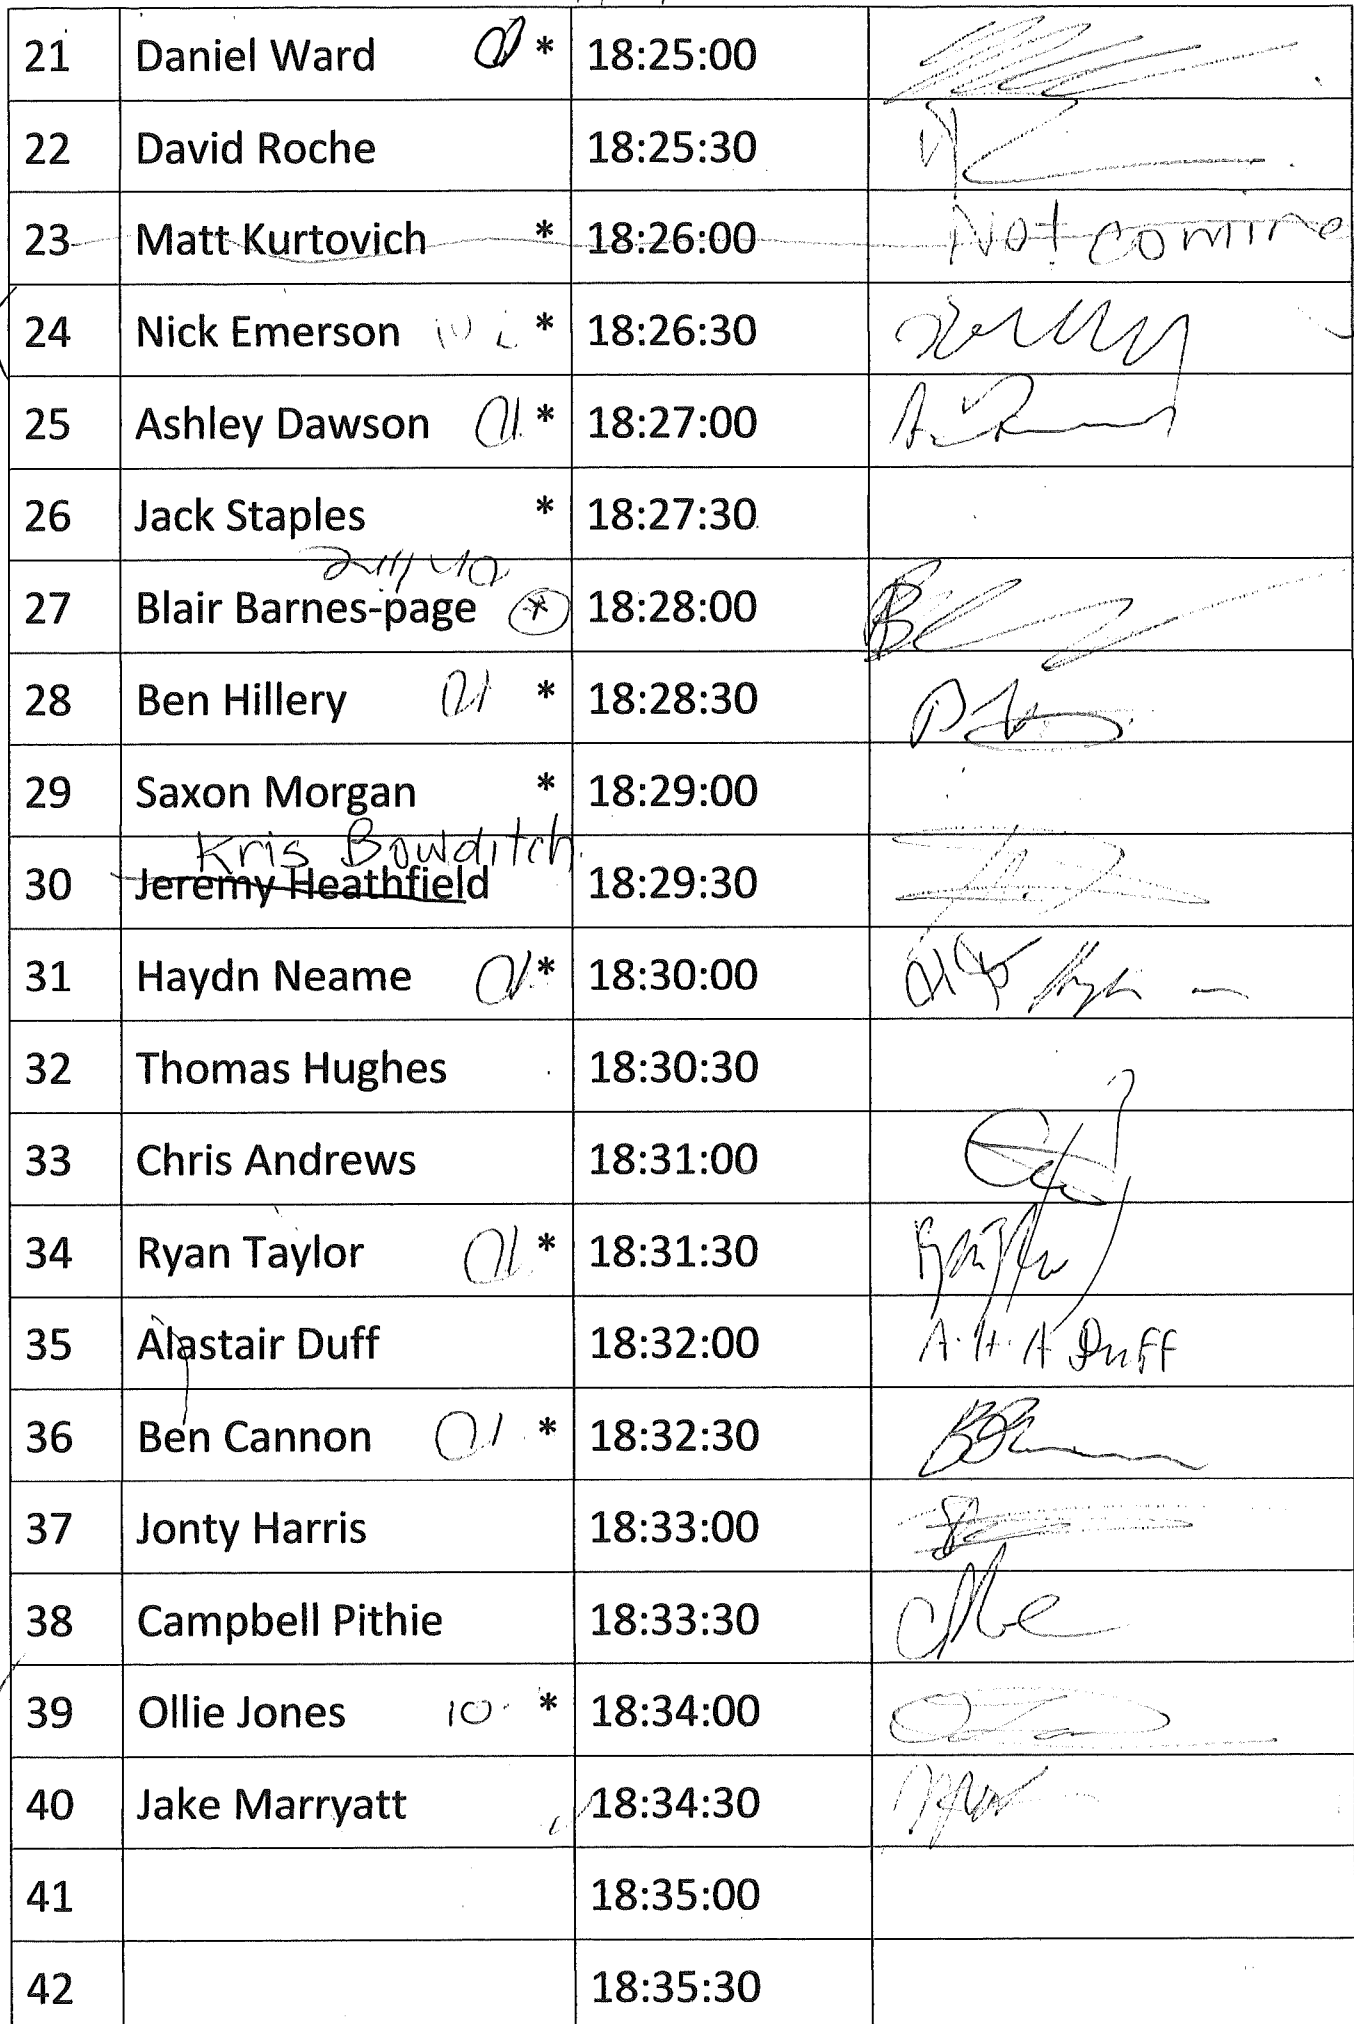 21 Daniel Ward * 18:25:00
22 David Roche 18:25:30
23 Matt Kurtovich * 18:26:00 Not coming
24 Nick Emerson * 18:26:30
25 Ashley Dawson * 18:27:00
26 Jack Staples * 18:27:30
27 Blair Barnes-page * 18:28:00
28 Ben Hillery * 18:28:30
29 Saxon Morgan * 18:29:00
Kris Bowditch
30 Jeremy Heathfield 18:29:30
31 Haydn Neame * 18:30:00
32 Thomas Hughes 18:30:30
33 Chris Andrews 18:31:00
34 Ryan Taylor * 18:31:30
35 Alastair Duff 18:32:00 A.H.A Duff
36 Ben Cannon * 18:32:30
37 Jonty Harris 18:33:00
38 Campbell Pithie 18:33:30
39 Ollie Jones 10 * 18:34:00
40 Jake Marryatt 18:34:30
41 18:35:00
42 18:35:30